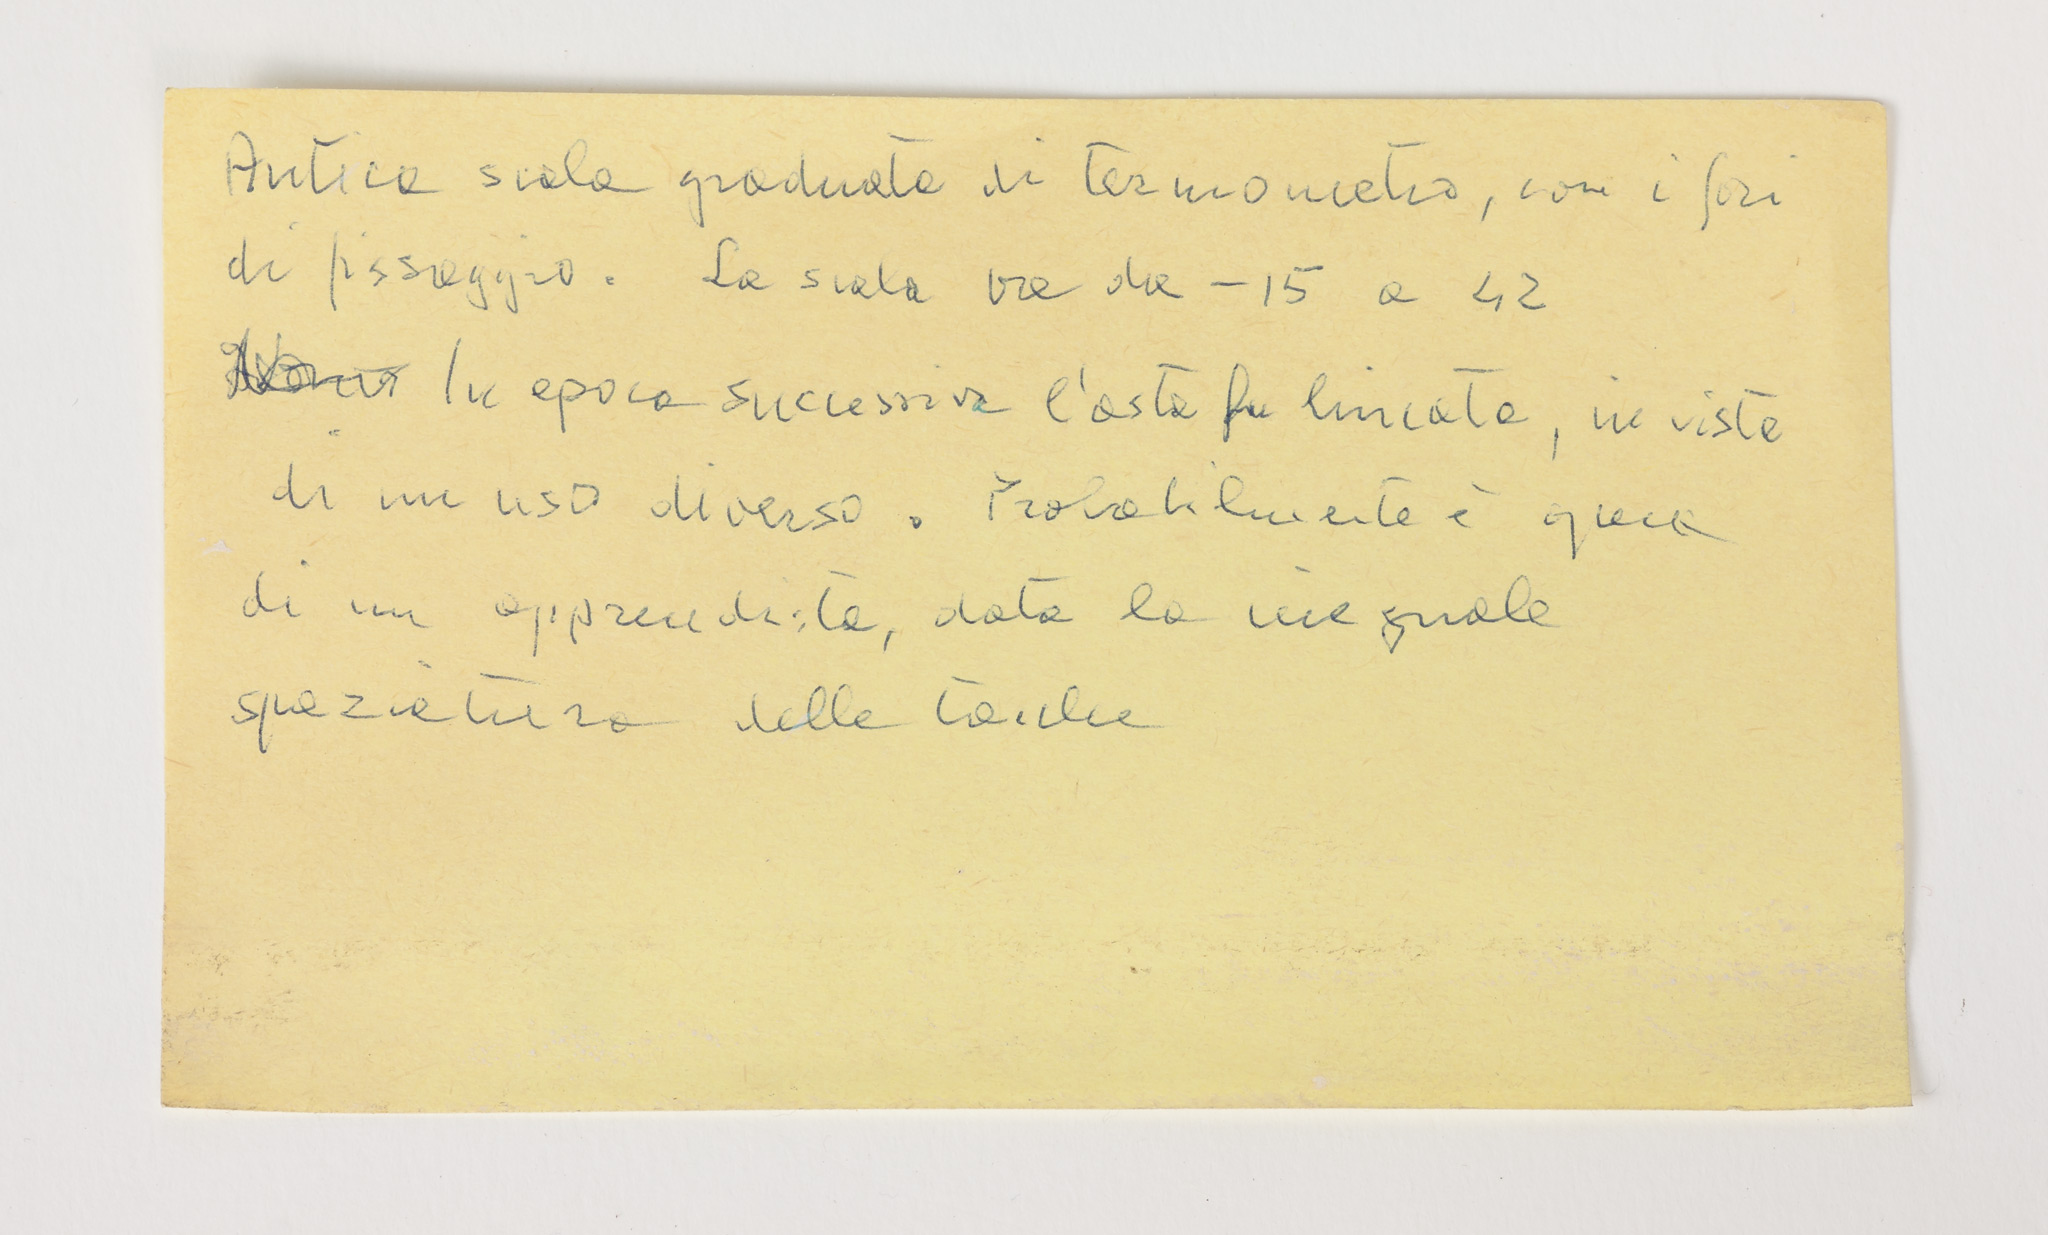 Antica scala graduata di termometro, con i fori
di fissaggio. La scala va da -15 a 42
In epoca successiva l'asta fu limata, in vista
di un uso diverso. Probabilmente è opera
di un apprendista, data la ineguale
spaziatura delle tacche